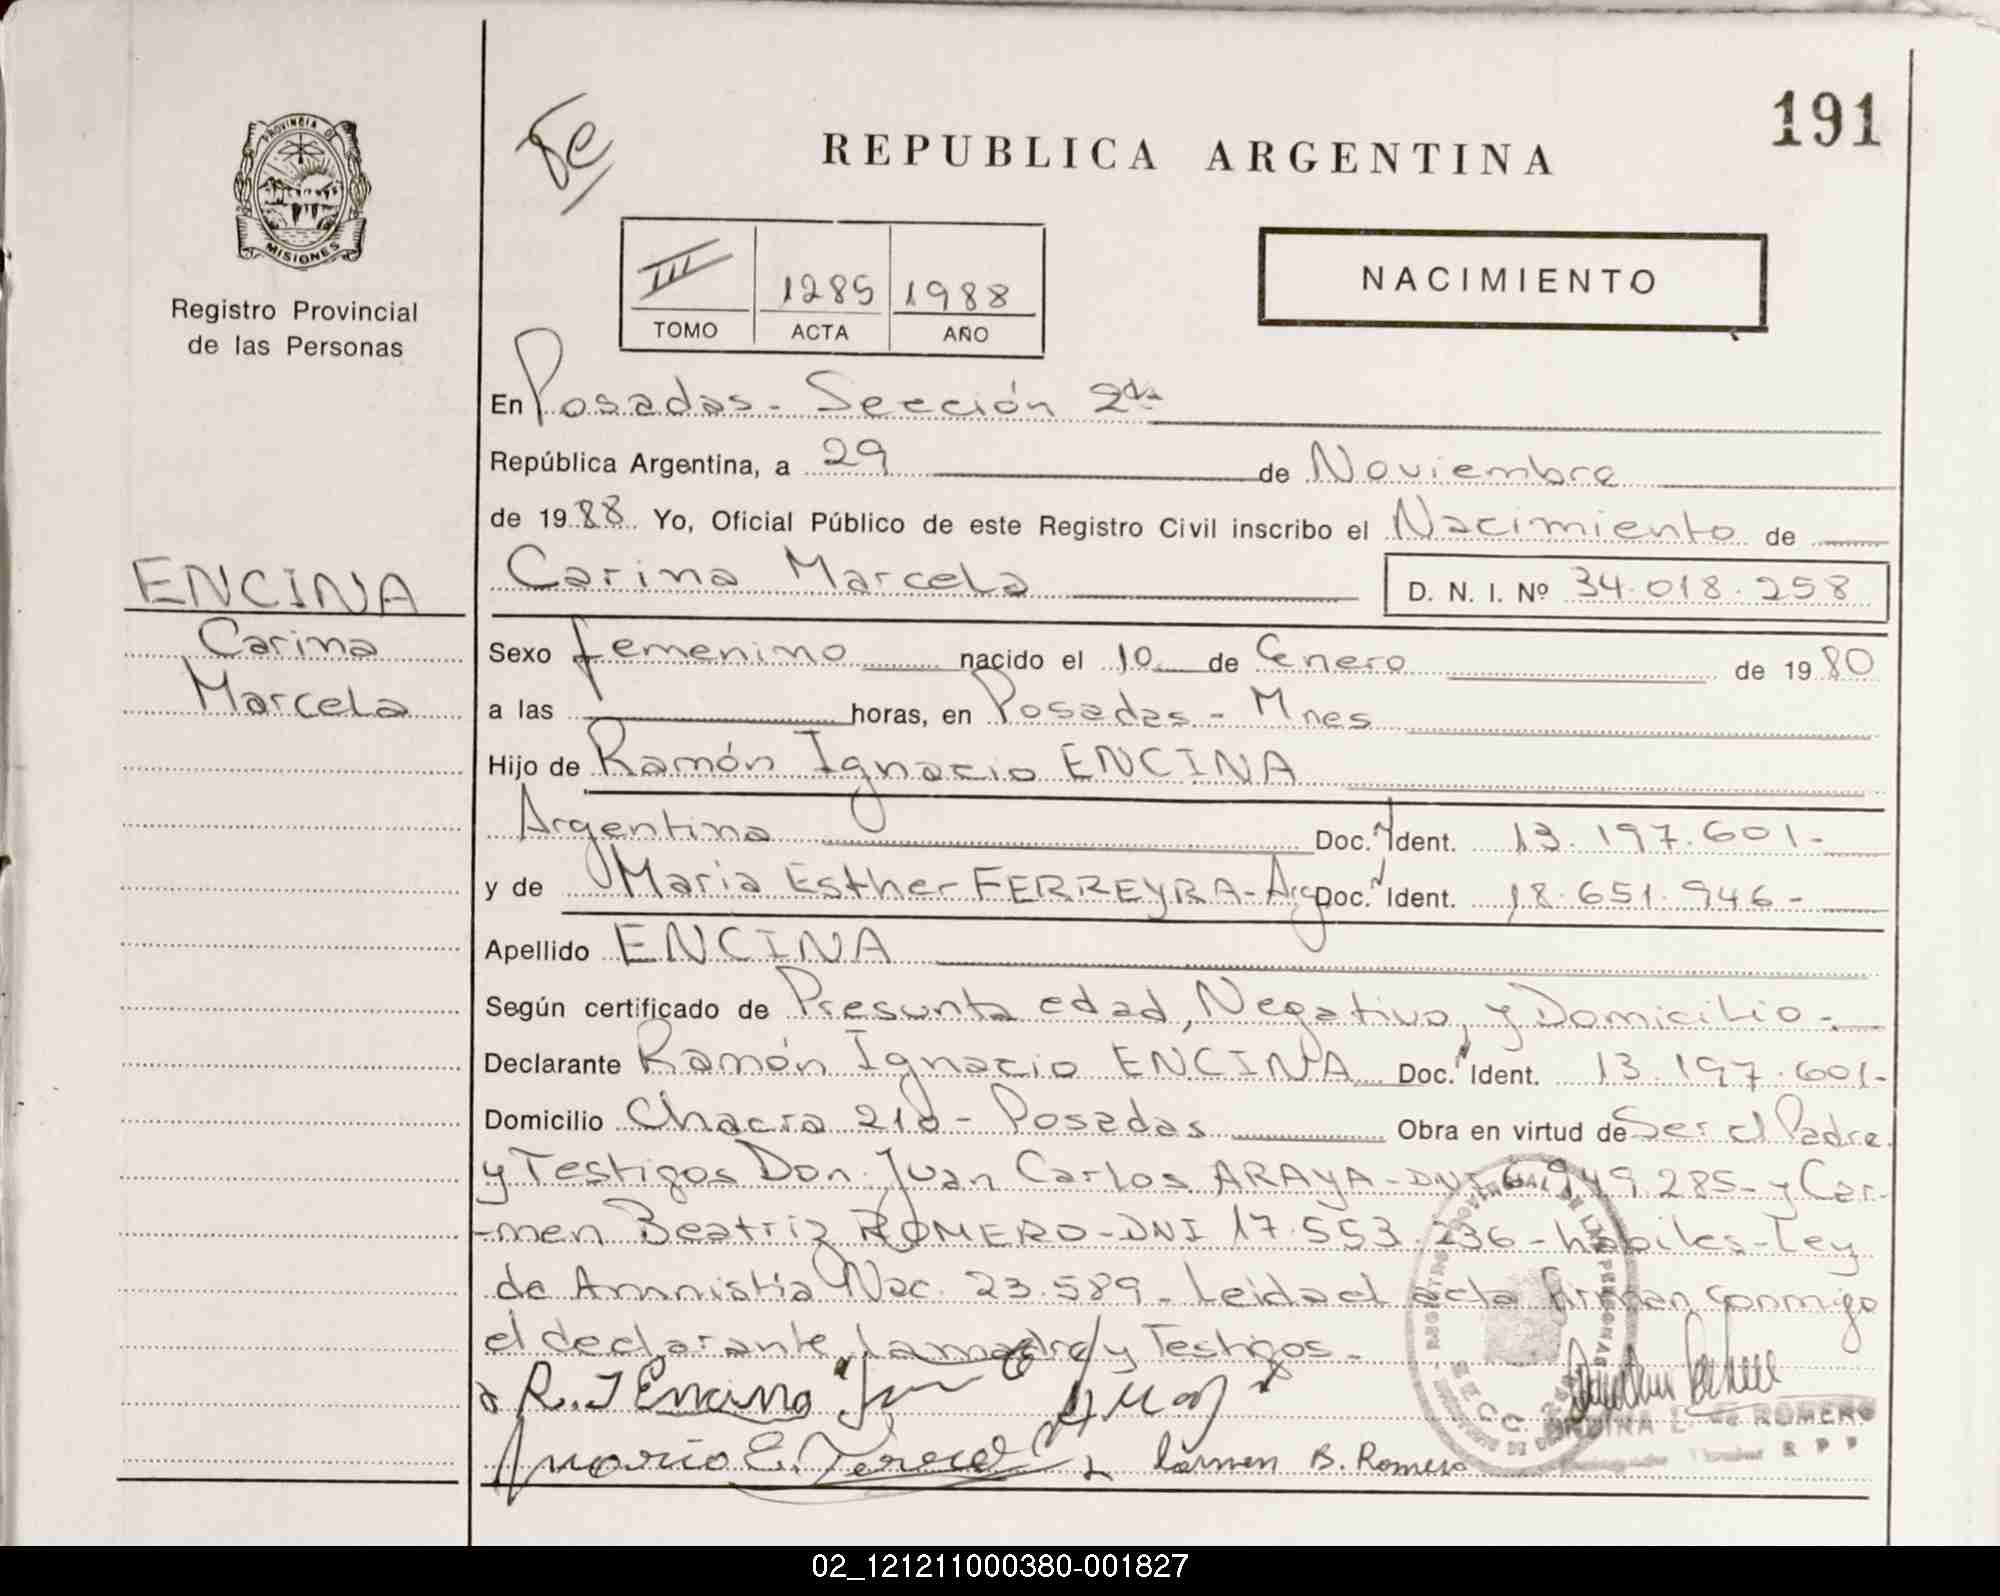 191
REPUBLICA ARGENTINA
PROVINCIA DE
MISIONES
Registro Provincial
de las Personas
III 1285 1988
TOMO ACTA AÑO
NACIMIENTO
En Posadas - Sección 2da
República Argentina, a 29 de Noviembre
de 1988 Yo, Oficial Público de este Registro Civil inscribo el Nacimiento de
Carina Marcela D. N. I. Nº 34.018.258
ENCINA
Carina
Marcela
Sexo femenino nacido el 10 de Enero de 1980
a las horas, en Posadas - Mnes
Hijo de Ramón Ignacio ENCINA
Argentina Doc. Ident. 13.197.601-
y de Maria Esther FERREYRA - Arg Doc. Ident. 18.651.946-
Apellido ENCINA
Según certificado de Presunta edad, Negativo, y Domicilio -
Declarante Ramón Ignacio ENCINA Doc. Ident. 13.197.601-
Domicilio Chacra 210 - Posadas Obra en virtud de Ser el Padre
y Testigos Don Juan Carlos ARAYA - DNI 6.949.285- y Car-
-men Beatriz ROMERO - DNI 17.553.236 - hábiles - Ley
de Amnistía Nac. 23.589 - Leida el acta firman conmigo
el declarante, la madre y Testigos -
R. I Encina
Carmen B. Romero
DE ROMERO
02_121211000380-001827